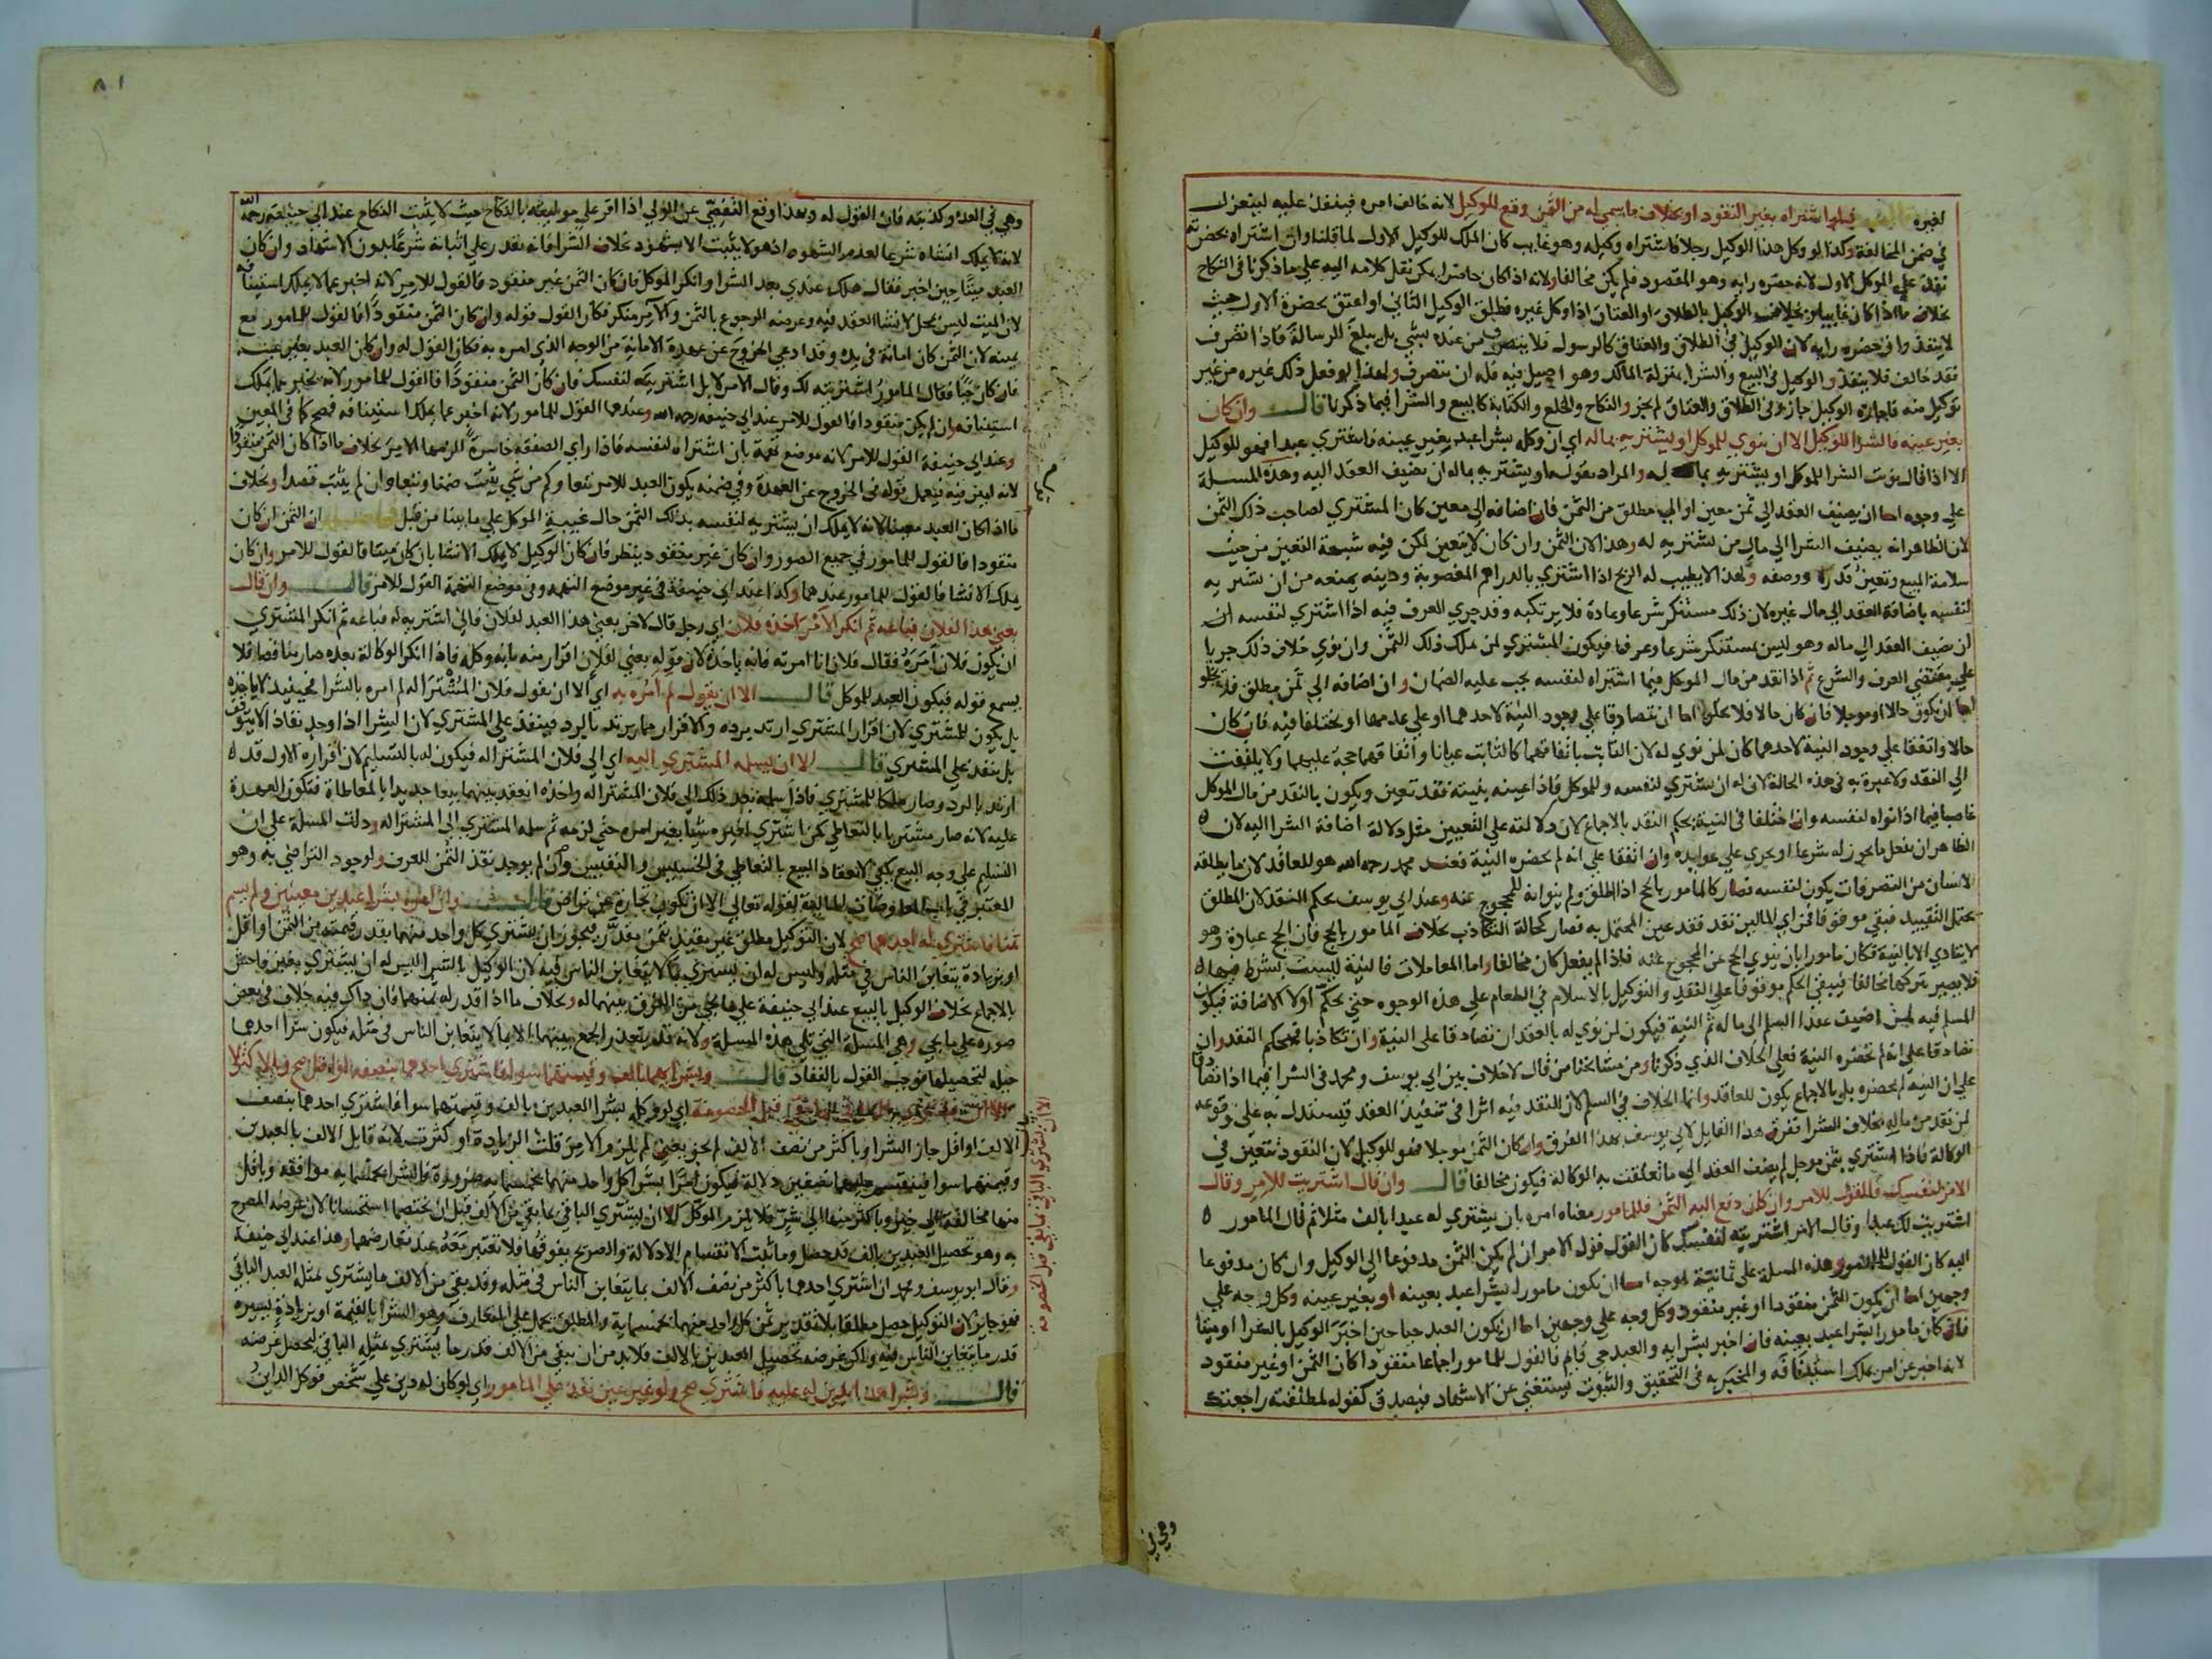 لغيره فلو اشتراه بغير النقود او بخلاف ما سمى له من الثمن وقع للوكيل لانه خالف امره فينفذ عليه لينعزل
في ضمن المخالفة وكذا لو وكل هذا الوكيل رجلا فاشتراه وكيله وهو غايب كان الملك للوكيل الاول لما قلنا وان اشتراه بحضرته
نفذ على الموكل الاول لانه حضره رايه وهو المقصود فلم يكن مخالفا ولانه اذا كان حاضرا يمكن نقل كلامه اليه على ما ذكرنا في النكاح
بخلاف ما اذا كان غايبا وبخلاف الوكيل بالطلاق او العتاق اذا وكل غيره فطلق الوكيل الثاني او اعتق بحضرة الاول حيث
لا ينفذ وان حضره رايه لان الوكيل في الطلاق والعتاق كالرسول فلا يتصرف من عنده بشي بل يبلغ الرسالة فاذا تصرف
فقد خالف فلا ينفذ والوكيل في البيع والشرا بمنزلة المالك وهو اصيل فيه فله ان يتصرف ولهذا لو فعل ذلك غيره من غير
توكيل منه فاجازه الوكيل جاز وفي الطلاق والعتاق لم يجز والنكاح والخلع والكتابة كالبيع والشرا فيما ذكرنا قال وان كان
بغير عينه فالشرا للوكيل الا ان ينوي للموكل او يشتريه بماله اي ان وكله بشرا عبد بغير عينه فاشترى عبدا فهو للوكيل
الا اذا قال نويت الشرا للموكل او يشتريه بماله والمراد بقوله او يشتريه بماله ان يضيف العقد اليه وهذه المسلة
على وجوه اما ان يضيف العقد الى ثمن معين او الى مطلق من الثمن فان اضافه الى معين كان المشترى لصاحب ذلك الثمن
لان الظاهر انه يضيف الشرا الى مال من يشتريه له وهذا لان الثمن وان كان لا يتعين لكن فيه شبهة التعين من حيث
سلامة المبيع وتعين قدره ووصفه ولهذا لا يطيب له الربح اذا اشترى بالدراهم المغصوبة ودينه يمنعه من ان يشتريه
لنفسه باضافة العقد الى مال غيره لان ذلك مستنكر شرعا وعادة فلا يرتكبه وقد جرى العرف فيه اذا اشترى لنفسه ان
ان يضيف العقد الى ماله وهو ليس بمستنكر شرعا وعرفا فيكون المشترى لمن ملك ذلك الثمن وان نوى خلاف ذلك جريا
على مقتضى العرف والشرع ثم اذا نقد من مال الموكل فيما اشتراه لنفسه يجب عليه الضمان وان اضافه الى ثمن مطلق فلا يخلو
اما ان يكون حالا او موجلا فان كان حالا فلا يخلو اما ان يتصادقا على وجود النية لاحدهما او على عدمها او يختلفا فيه فان كان
حالا واتفقا على وجود النية لاحدهما كان لمن نوى له لان الثابت باتفاقهما كالثابت عيانا واتفاقهما حجة عليهما ولا يلتفت
الى النقد ولا عبرة به في هذه الحالة لان له ان يشتري لنفسه وللموكل فاذا عينه بنيته فقد تعين ويكون بالنقد من مال الموكل
غاصبا فيما اذا نواه لنفسه وان اختلفا في النية يحكم النقد بالاجماع لان دلالته على التعيين مثل دلالة اضافة الشرا اليه لان
الظاهر ان يفعل ما يجوز له شرعا او يجري على عوايده وان اتفقا على انه لم تحضره النية فعند محمد رحمه الله هو للعاقد لان ما يطلقه
الانسان من التصرفات يكون لنفسه فصار كالمامور بالحج اذا اطلق ولم ينوانه للمحجوج عنه وعند ابي يوسف يحكم النقد لان المطلق
يحتمل التقييد فبقي موقوفا فمن اي المالين نقد فقد عين المحتمل به فصار كحالة التكاذب بخلاف المامور بالحج فان الحج عبادة وهو
لا يتادي الا بالنية فكان مامورا بان ينوي الحج عن المحجوج عنه فاذا لم يفعل كان مخالفا واما المعاملات فالنية ليست بشرط فيها
فلا يصير بتركها مخالفا فيبقى الحكم موقوفا على النقد والتوكيل بالاسلام في الطعام على هذه الوجوه حتى يحكم اولا الاضافة فيكون
المسلم فيه لمن اضيف عقد السلم الى ماله ثم النية فيكون لمن نوى له بالعقد ان تصادقا على النية وان تكاذبا يحكم النقد وان
تصادقا على انه لم تحضره النية فعلى الخلاف الذي ذكرنا ومن مشايخنا من قال لا خلاف بين ابي يوسف ومحمد في الشرا فيما اذا تصادقا
على ان النية لم تحضره بل بالاجماع يكون للعاقد وانما الخلاف في السلم لان للنقد فيه اثرا في تنفيذ العقد فيستدل به على وقوعه
لمن نقد من ماله بخلاف الشرا ففرق هذا القايل لابي يوسف بهذا الفرق وان كان الثمن موجلا فهو للوكيل لان النقود تتعين في
الوكالة فاذا اشترى بثمن موجل لم يضف العقد الى ما تعلقت به الوكالة فيكون مخالفا قال وان قال اشتريت للامر وقال
الامر لنفسك فالقول للامر وان كان دفع اليه الثمن فللمامور معناه امره بان يشتري له عبدا بالف مثلا ثم قال المامور
اشتريت لك عبدا وقال الامر اشتريته لنفسك كان القول قول الامر ان لم يكن الثمن مدفوعا الى الوكيل وان كان مدفوعا
اليه كان القول للمامور وهذه المسلة على ثمانية اوجه اما ان يكون مامورا بشرا عبد بعينه او بغير عينه وكل وجه على
وجهين اما ان يكون الثمن منقودا او غير منقود وكل وجه على وجهين اما ان يكون العبد حيا حين اخبر الوكيل بالشرا او ميتا
فان كان مامورا بشرا عبد بعينه فان اخبر بشرايه والعبد حي قايم فالقول للمامور اجماعا منقودا كان الثمن او غير منقود
لانه اخبر عن امر يملك استينافه والمخبر به في التحقيق والثبوت يستغني عن الاشهاد فيصدق كقوله لمطلقته راجعتك
وهي في
٨١
وهي في العدة وكذبته فان القول له وبهذا وقع التفصي عن الولي اذا اقر على موليته بالنكاح حيث لا يثبت النكاح عند ابي حنيفة رحمه الله
لانه لا يملك انشاه شرعا لعدم الشهود اذ هو لا يثبت الا بشهود بخلاف الشرا فانه يقدر على اثباته شرعا بدون الاشهاد وان كان
العبد ميتا حين اخبر فقال هلك عندي بعد الشرا وانكر الموكل فان كان الثمن غير منقود فالقول للامر لانه اخبر عما لا يملك استينافه
لان الميت ليس بمحل لانشا العقد فيه وغرضه الرجوع بالثمن والآمر منكر فكان القول قوله وان كان الثمن منقودا فالقول للمامور مع
يمينه لان الثمن كان امانة في يده وقد ادعى الخروج عن عهدة الامانة من الوجه الذي امره به فكان القول له وان كان العبد بغير عينه
فان كان حيا فقال المامور اشتريته لك وقال الامر لا بل اشتريته لنفسك فان كان الثمن منقودا فالقول للمامور لانه يخبر عما يملك
استينافه وان لم يكن منقودا فالقول للامر عند ابي حنيفة رحمه الله وعندهما القول للمامور لانه اخبر عما يملك استينافه فصح كما في المعين
وعند ابي حنيفة القول للامر لانه موضع تهمة بان اشتراه لنفسه فاذا راى الصفقة خاسرة الزمها الامر بخلاف ما اذا كان الثمن منقودا
لانه امين فيه فيعمل قوله في الخروج عن العهدة وفي ضمنه يكون العبد للامر تبعا وكم من شي يثبت ضمنا وتبعا وان لم يثبت قصدا وبخلاف
ما اذا كان العبد معينا لانه لا يملك ان يشتريه لنفسه بذلك الثمن حال غيبة الموكل على ما بينا من قبل ان الثمن ان كان
منقودا فالقول للمامور في جميع الصور وان كان غير منقود ينظر فان كان الوكيل لا يملك الانشا بان كان ميتا فالقول للامر وان كان
يملك الانشا فالقول للمامور عندهما وكذا عند ابي حنيفة في غير موضع التهمة وفي موضع التهمة القول للامر قال وان قال
بعني هذا لفلان فباعه ثم انكر الامر اخذه فلان اي رجل قال لاخر بعني هذا العبد لفلان فاني اشتريه له فباعه ثم انكر المشتري
ان يكون فلان امره فقال فلان انا امرته فانه ياخذه لان قوله بعني لفلان اقرار منه بانه وكله فاذا انكر الوكالة بعده صار مناقضا فلا
يسمع قوله فيكون العبد للموكل قال الا ان يقول لم امره به اي الا ان يقول فلان المشترى له لم امره بالشرا فحينيذ لا ياخذه
بل يكون للمشتري لان اقرار المشتري ارتد برده والاقرار مما يرتد بالرد فينفذ على المشتري لان الشرا اذا وجد نفاذا لا يتوقف
بل ينفذ على المشتري قال الا ان يسلمه المشتري اليه اي الى فلان المشترى له فيكون له بالتسليم لان اقراره الاول قد
ارتد بالرد وصار ملكا للمشتري فاذا سلمه بعد ذلك الى فلان المشترى له واخذه انعقد بينهما بيعا جديدا بالمعاطاة فتكون العهدة
عليه لانه صار مشتريا بالتعاطي كمن اشترى لغيره شيا بغير امره حتى لزمه ثم سلمه المشتري الى المشترى له ودلت المسلة على ان
التسليم على وجه البيع يكفي لانعقاد البيع بالتعاطي في الخسيس والنفيس وان لم يوجد نقد الثمن للعرف ولوجود التراضي به وهو
المعتبر في باب المعاوضات المالية لقوله تعالى الا ان تكون تجارة عن تراض قال وان امره بشرا عبدين معينين ولم يسم
ثمنا فاشترى له احدهما صح لان التوكيل مطلق غير مقيد بثمن مقدر فيجوز ان يشتري كل واحد منهما بقدر قيمته من الثمن او اقل
او بزيادة يتغابن الناس في مثله وليس له ان يشتري بما لا يتغابن الناس فيه لان الوكيل بالشرا ليس له ان يشتري بغبن فاحش
بالاجماع بخلاف الوكيل بالبيع عند ابي حنيفة على ما يجي من الفرق بينهما له وبخلاف ما اذا قدر له ثمنهما فان ذاك فيه خلاف في بعض
صوره على ما يجي وهي المسلة التي تلي هذه المسلة ولانه قد يتعذر الجمع بينهما الا بما لا يتغابن الناس في مثله فيكون شرا احدهما
حيلة لتحصيلها فوجب القول بالنفاذ قال وبشرايهما بالف وقيمتهما سوا فاشترى احدهما بنصفه او اقل صح وبالاكثر لا
الا ان يشتري الباقي بما بقي قبل الخصومة اي لو وكله بشرا العبدين بالف وقيمتهما سوا فاشترى احدهما بنصف
الالف او اقل جاز الشرا وباكثر من نصف الالف لم يجز يعني لم يلزم الامر قلت الزيادة او كثرت لانه قابل الالف بالعبدين
وقيمتهما سوا فينقسم عليهما نصفين دلالة فيكون امرا بشرا كل واحد منهما بخمسماية ضرورة فالشرا بخمسماية موافقة وباقل
منها مخالفة الى خير وباكثر منها الى شر فلا يلزم الموكل الا ان يشتري الباقي بما بقي من الالف قبل ان يختصما استحسانا لان غرضه المصرح
به وهو تحصيل العبدين بالف قد حصل وما ثبت الانقسام الا دلالة والصريح يفوقها فلا تعتبر معه عند تعارضهما وهذا عند ابي حنيفة
وقال ابو يوسف ومحمد ان اشترى احدهما باكثر من نصف الالف بما يتغابن الناس في مثله وقد بقي من الالف ما يشتري بمثله العبد الباقي
فهو جايز لان التوكيل حصل مطلقا بلا تقدير ثمن كل واحد منهما بخمسماية والمطلق يحمل على المتعارف وهو الشرا بالقيمة او بزيادة يسيره
قدر ما يتغابن الناس فيه ولكن غرضه تحصيل العبدين بالالف فلا بد من ان يبقى من الالف قدر ما يشتري بمثله الباقي ليحصل غرضه
قال وبشرا هذا بدين له عليه فاشترى صح ولو غير عين نفذ على المامور اي لو كان له دين على شخص فوكل الداين
الا ان يشتري الباقي بما بقي قبل الخصومة